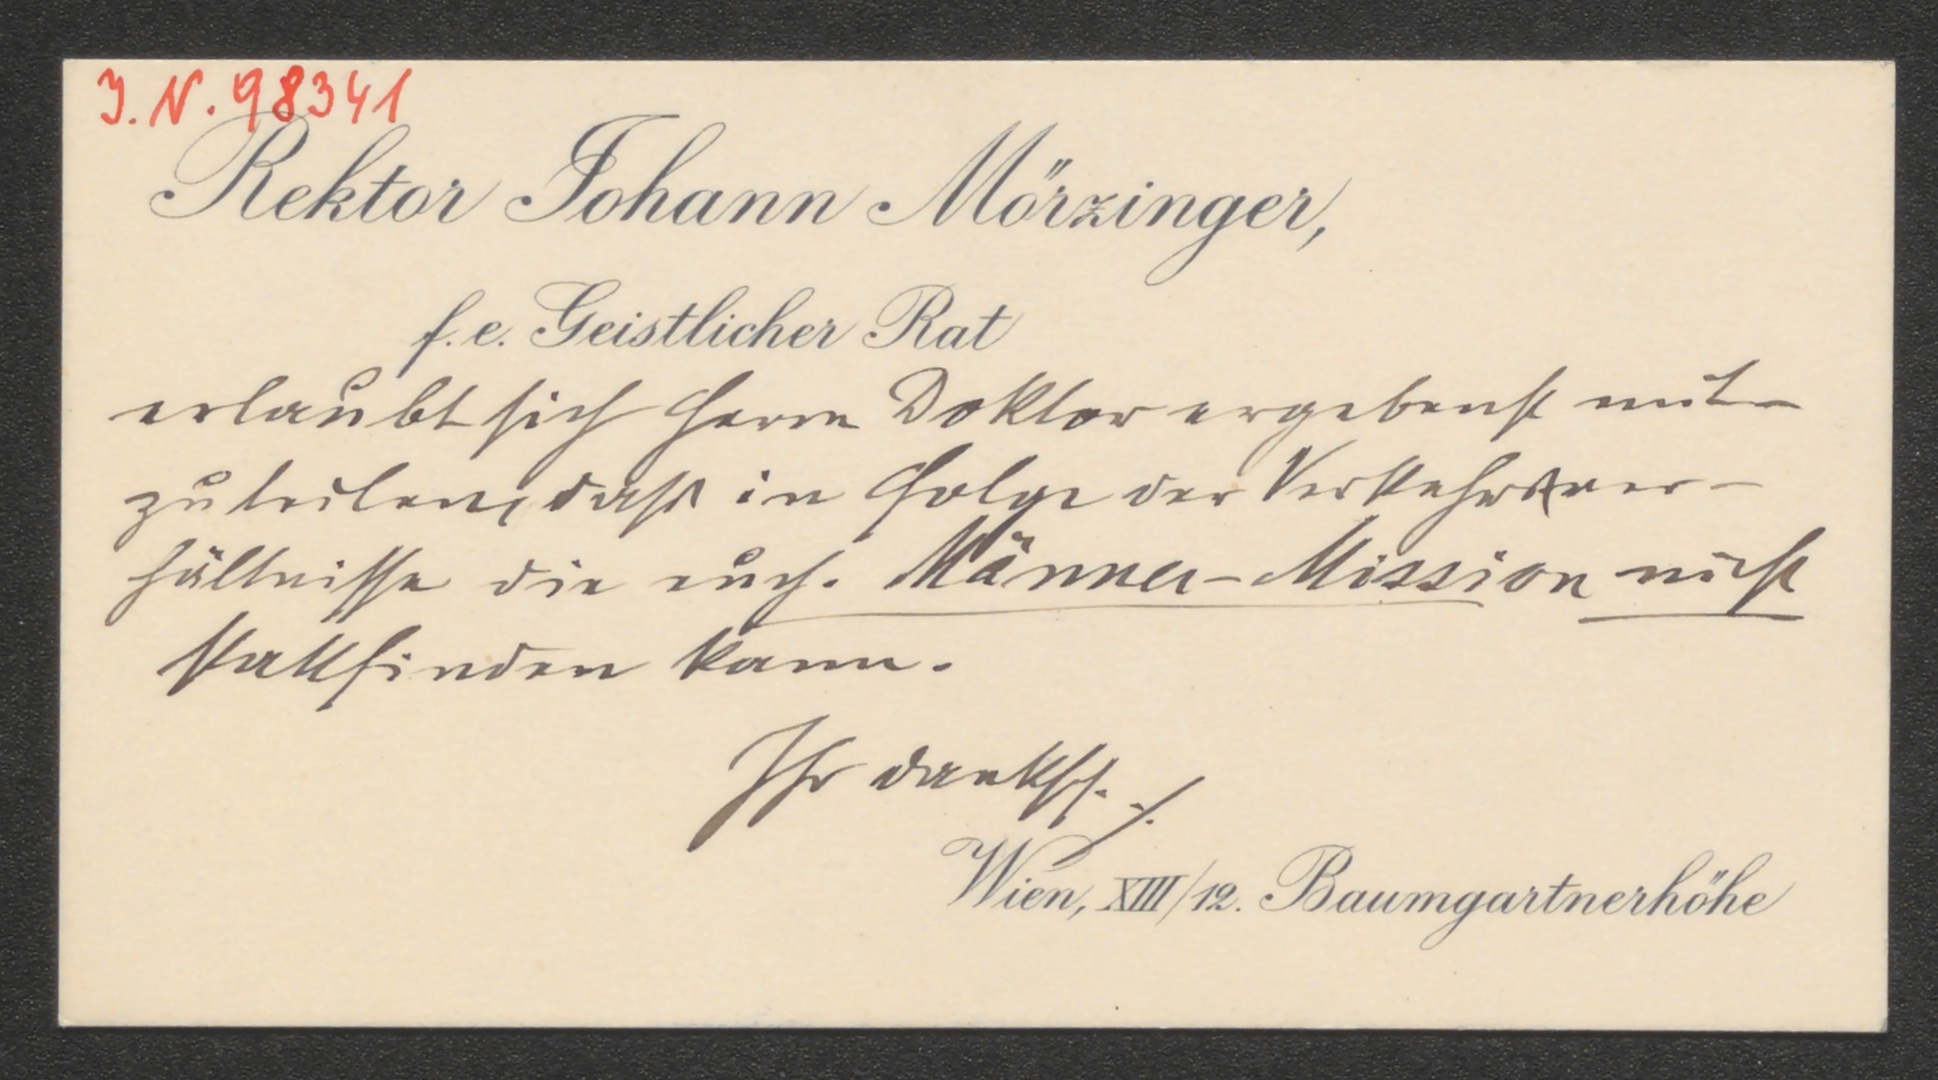 J.N. 98341
Rektor Johann Mörzinger,
f. e. Geistlicher Rat
erlaubt sich Herrn Doktor ergebenst mit-
zuteilen, daß in Folge der Verkehrsver-
hältnisse die Männer-Mission nicht
stattfinden kann.
Ihr
Wien, XIII/12. Baumgartnerhöhe